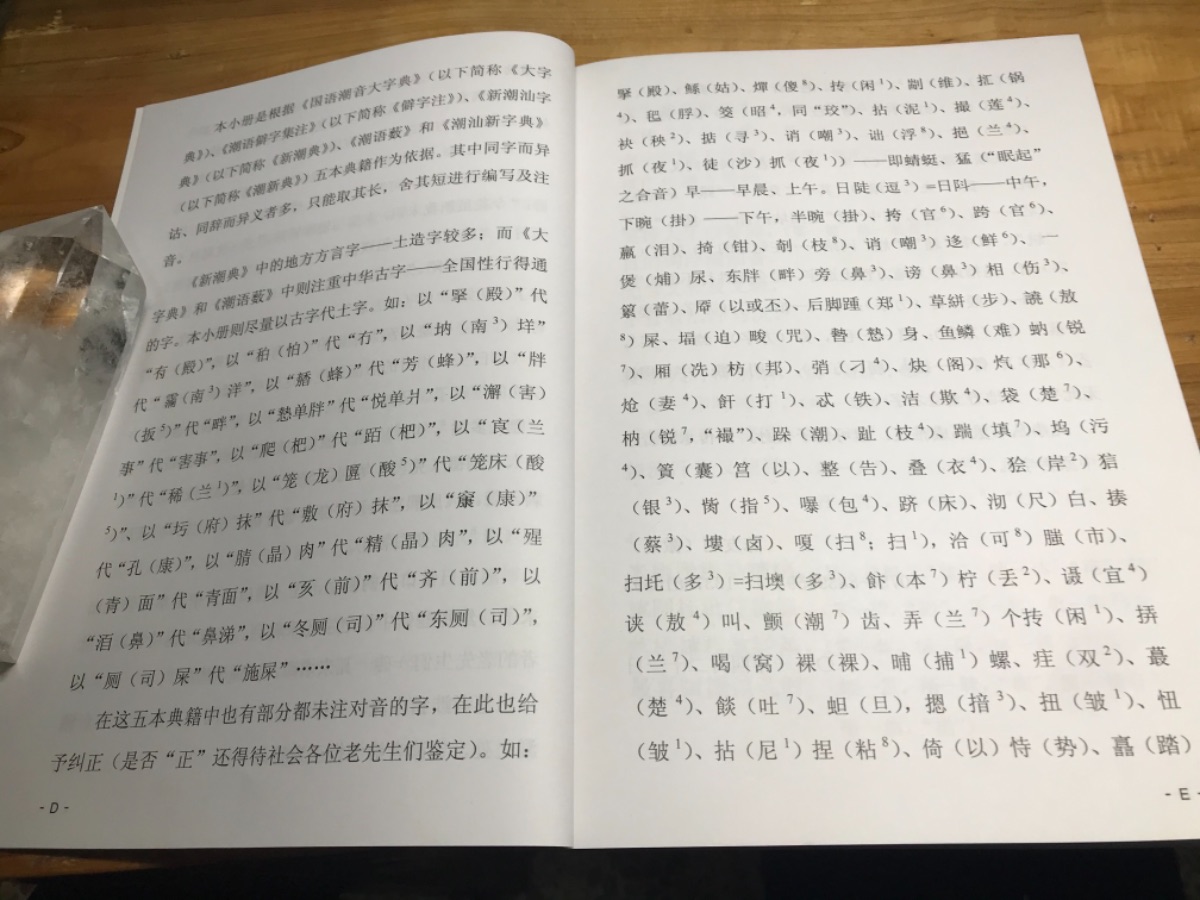 本小册是根据《国语潮音大字典》（以下简称《大字
典》）、《潮语僻字集注》（以下简称《僻字注》）、《新潮汕字
典》（以下简称《新潮典》）、《潮语薮》和《潮汕新字典》
（以下简称《潮新典》）五本典籍作为依据。其中同字而异
诂、同辞而异义者多，只能取其长，舍其短进行编写及注
音。
《新潮典》中的地方方言字——土造字较多；而《大
字典》和《潮语薮》中则注重中华古字——全国性行得通
的字。本小册则尽量以古字代土字。如：以“掔（殿）”代
“冇（殿）”，以“（怕）”代“冇”，以“㘨（南³）垟”
代“（南³）洋”，以“（蜂）”代“芳（蜂）”，以“牉
（扳⁵）”代“畔”，以“慗单牉”代“悦单爿”，以“澥（害）
事”代“害事”，以“爬（杷）”代“跁（杷）”，以“㝗（兰
¹）”代“稀（兰¹）”，以“笼（龙）匧（酸⁵）”代“笼床（酸
⁵）”、以“圬（府）抹”代“敷（府）抹”，以“（康）”
代“孔（康）”，以“腈（晶）肉”代“精（晶）肉”，以“殅
（青）面”代“青面”，以“亥（前）”代“齐（前）”，以
“洦（鼻）”代“鼻涕”，以“冬厕（司）”代“东厕（司）”，
以“厕（司）屎”代“施屎”……
在这五本典籍中也有部分都未注对音的字，在此也给
予纠正（是否“正”还得待社会各位老先生们鉴定）。如：
- D -
掔（殿）、鲧（姑）、燀（傻⁸）、抟（闲¹）、劀（维）、扛（锅
⁴）、毢（脬）、筊（昭⁴，同“珓”）、拈（泥¹）、撮（莲⁴）、
袂（秧²）、掂（寻³）、诮（嘲³）、诎（浮⁸）、挹（兰⁴）、
抓（夜¹）、徒（沙）抓（夜¹））——即蜻蜓、猛（“眠起”
之合音）早——早晨、上午。日陡（逗³）=日㪷——中午，
下晼（掛）——下午，半晼（掛）、挎（官⁶）、跨（官⁶）、
赢（泪）、掎（钳）、剞（枝⁸）、诮（嘲³）迻（鲜⁶）、一
煲（烳）尿、东牉（畔）旁（鼻³）、谤（鼻³）相（伤³）、
（蕾）、（以或丕）、后脚踵（郑¹）、草絣（步）、譊（敖
⁸）屎、堛（迫）畯（咒）、朁（慗）身、鱼鳞（难）蚋（锐
⁷）、厢（冼）枋（邦）、弰（刁⁴）、炔（阁）、炾（那⁶）、
炝（妻⁴）、飦（打¹）、忒（铁）、洁（欺⁴）、袋（楚⁷）、
枘（锐⁷，“襊”）、跺（潮）、趾（枝⁴）、踹（填⁷）、坞（污
⁴）、篢（囊）筥（以）、整（告）、叠（衣⁴）、狯（岸²）狺
（银³）、胔（指⁵）、嚗（包⁴）、跻（床）、沏（尺）白、揍
（蔡³）、塿（卤）、嗄（扫⁸；扫¹），洽（可⁸）螣（市）、
扫圫（多³）=扫墺（多³）、飰（本⁷）柠（丢²）、谒（宜⁴）
诶（敖⁴）叫、颤（潮⁷）齿、弄（兰⁷）个抟（闲¹）、拼
（兰⁷）、喝（窝）裸（裸）、晡（捕¹）螺、疰（双²）、蕞
（楚⁴）、餤（吐⁷）、蚎（旦），揌（揞³）、扭（皱¹）、忸
（皱¹）、拈（尼¹）捏（粘⁸）、倚（以）恃（势）、嚞（踏）
- E -